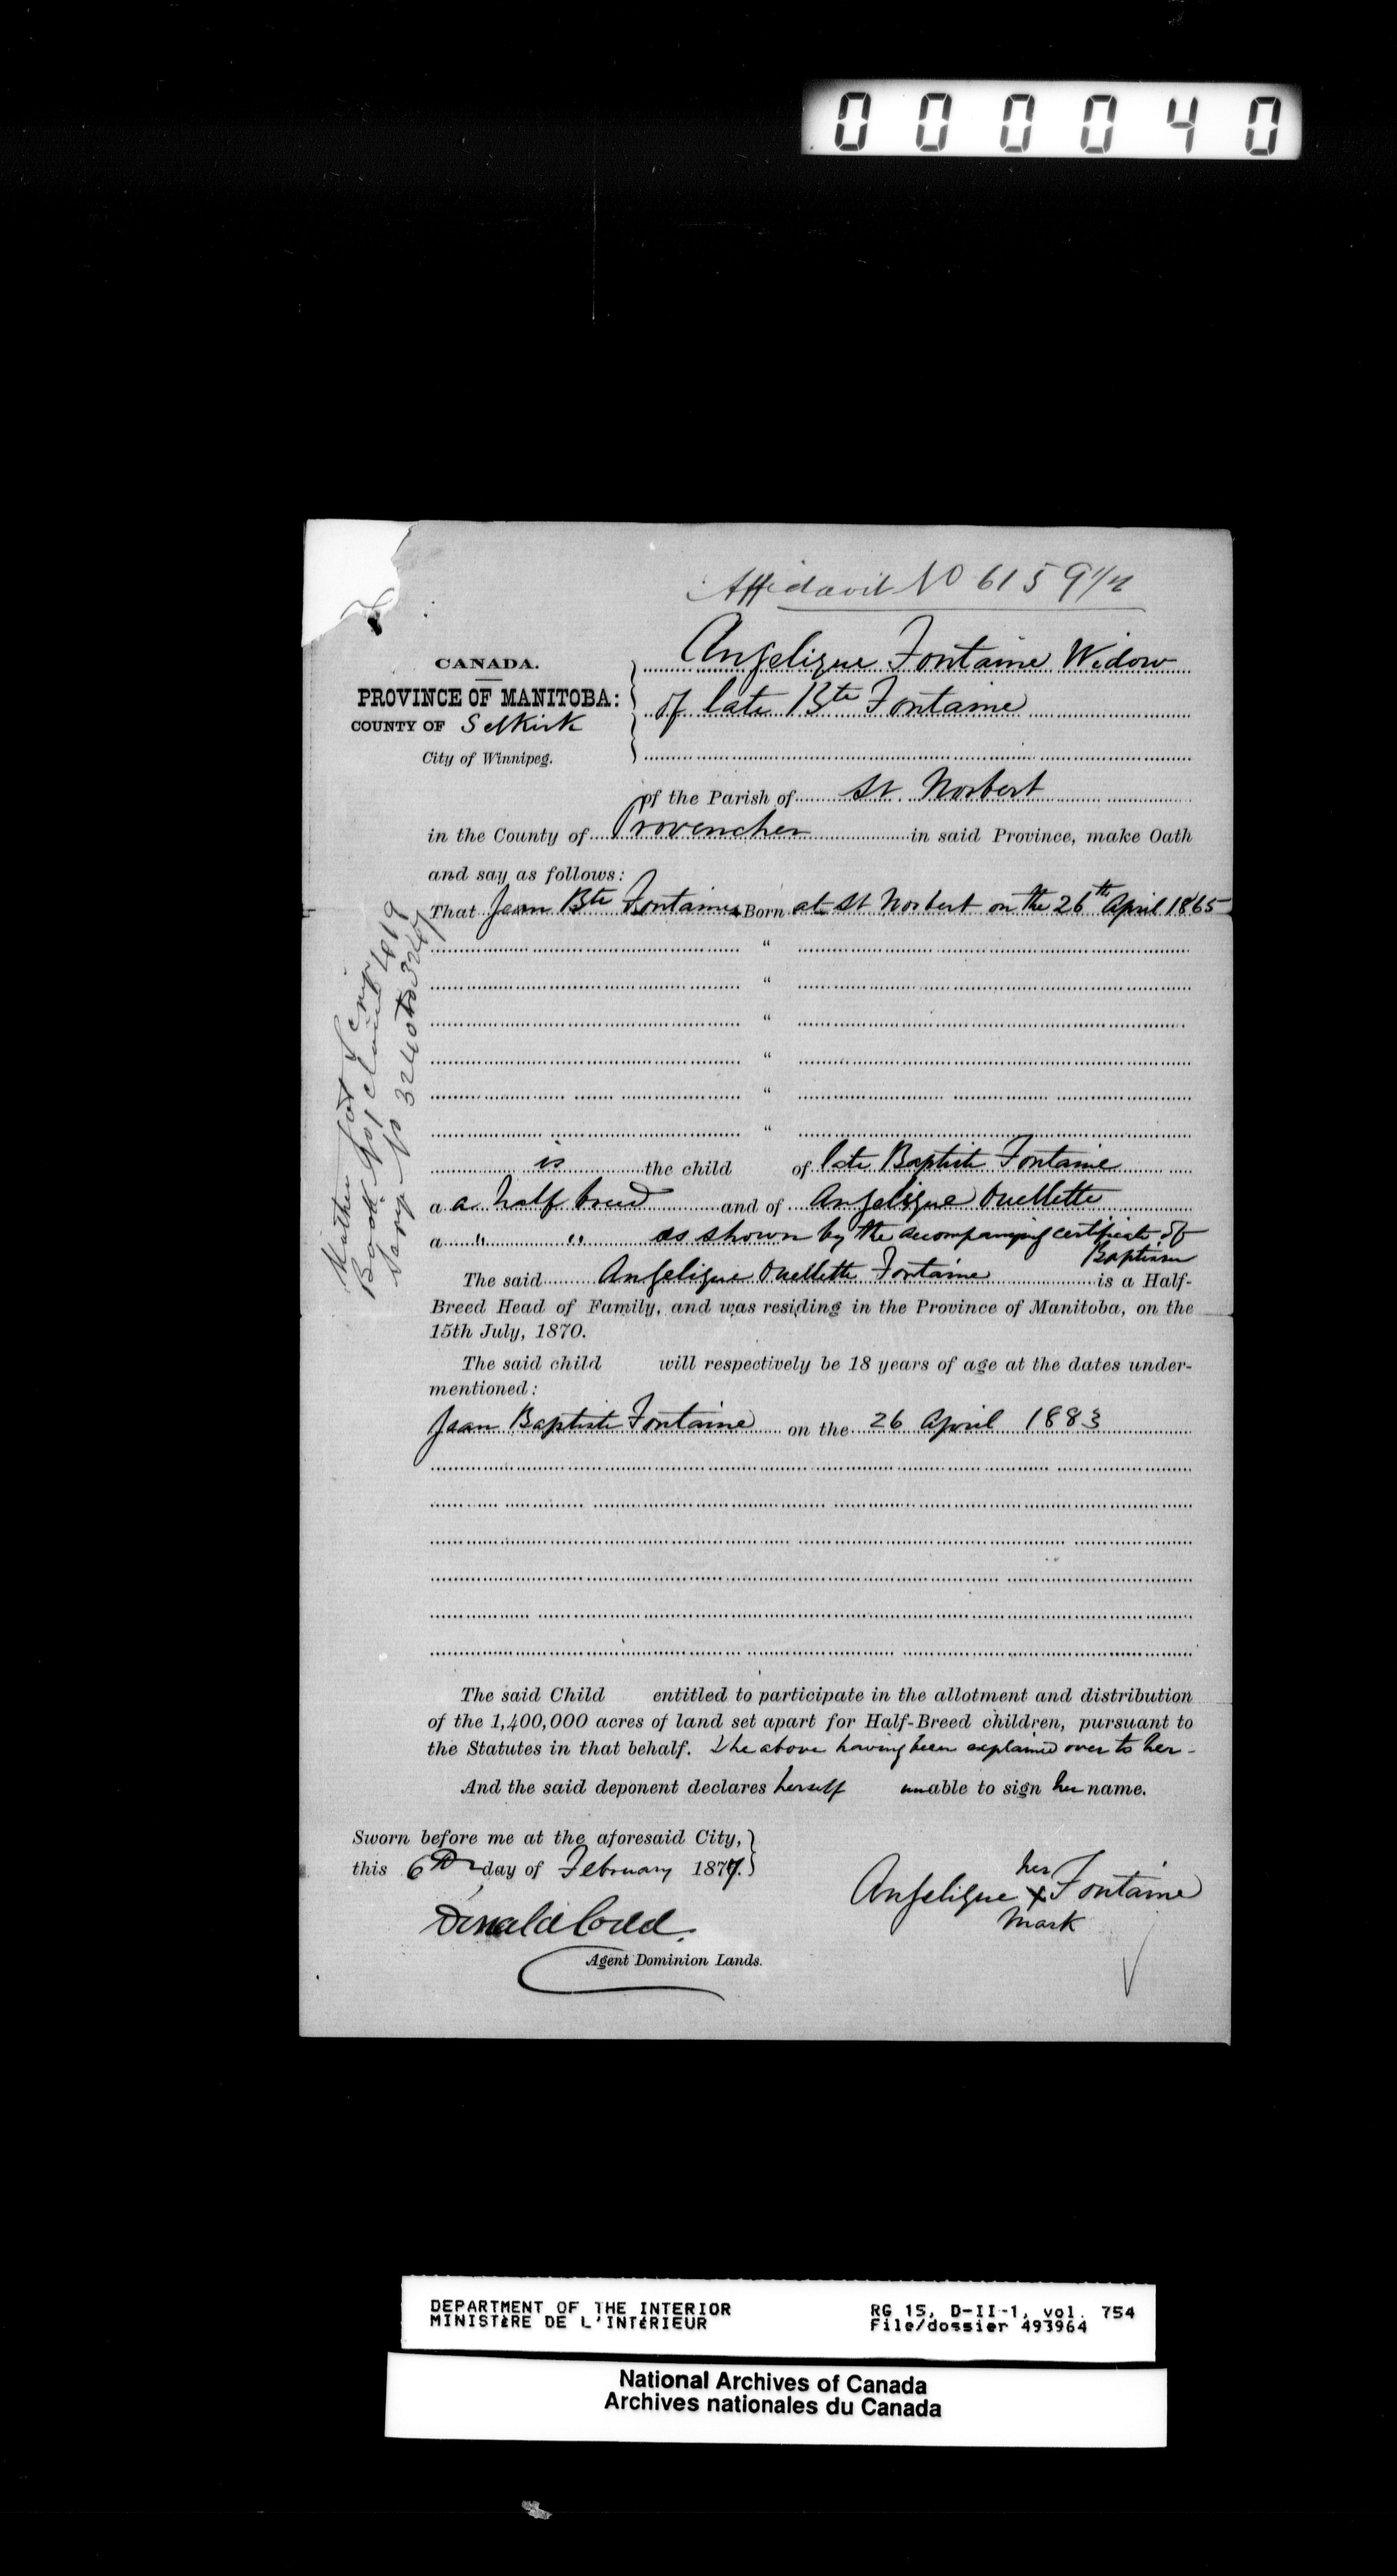 000040
Affidavit No 6159 1/2
CANADA.
PROVINCE OF MANITOBA:
COUNTY OF Selkirk
City of Winnipeg.
Angelique Fontaine Widow
of late Bte Fontaine
of the Parish of St. Norbert
in the County of Provencher in said Province, make Oath
and say as follows:
That Jean Bte Fontaine Born at St Norbert on the 26th April 1865
"
"
"
"
"
"
is the child of late Baptiste Fontaine
a a half breed and of Angelique Ouellette
a " " as shown by the accompanying certificate of
Baptism
The said Angelique Ouellette Fontaine is a Half-
Breed Head of Family, and was residing in the Province of Manitoba, on the
15th July, 1870.
The said child will respectively be 18 years of age at the dates under-
mentioned:
Jean Baptiste Fontaine on the 26 April 1883
The said Child entitled to participate in the allotment and distribution
of the 1,400,000 acres of land set apart for Half-Breed children, pursuant to
the Statutes in that behalf. The above having been explained over to her -
And the said deponent declares herself unable to sign her name.
Sworn before me at the aforesaid City,
this 6th day of February 1877.
Donald Codd.
Agent Dominion Lands.
her
Angelique X Fontaine
mark
Mother got Scrip
Book No 1 claim 419
Scrip No 3240 to 3247
DEPARTMENT OF THE INTERIOR
MINISTÈRE DE L'INTÉRIEUR
RG 15, D-II-1, vol. 754
File/dossier 493964
National Archives of Canada
Archives nationales du Canada